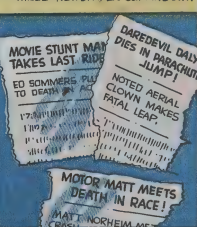 MOVIE STUNT MAN
TAKES LAST RIDE
ED SOMMERS
TO DEATH
DAREDEVIL DALY
DIES IN PARACHUTE
JUMP!
NOTED AERIAL
CLOWN MAKES
FATAL LEAP.
MOTOR MATT MEETS
DEATH IN RACE!
MATT NORHEIM